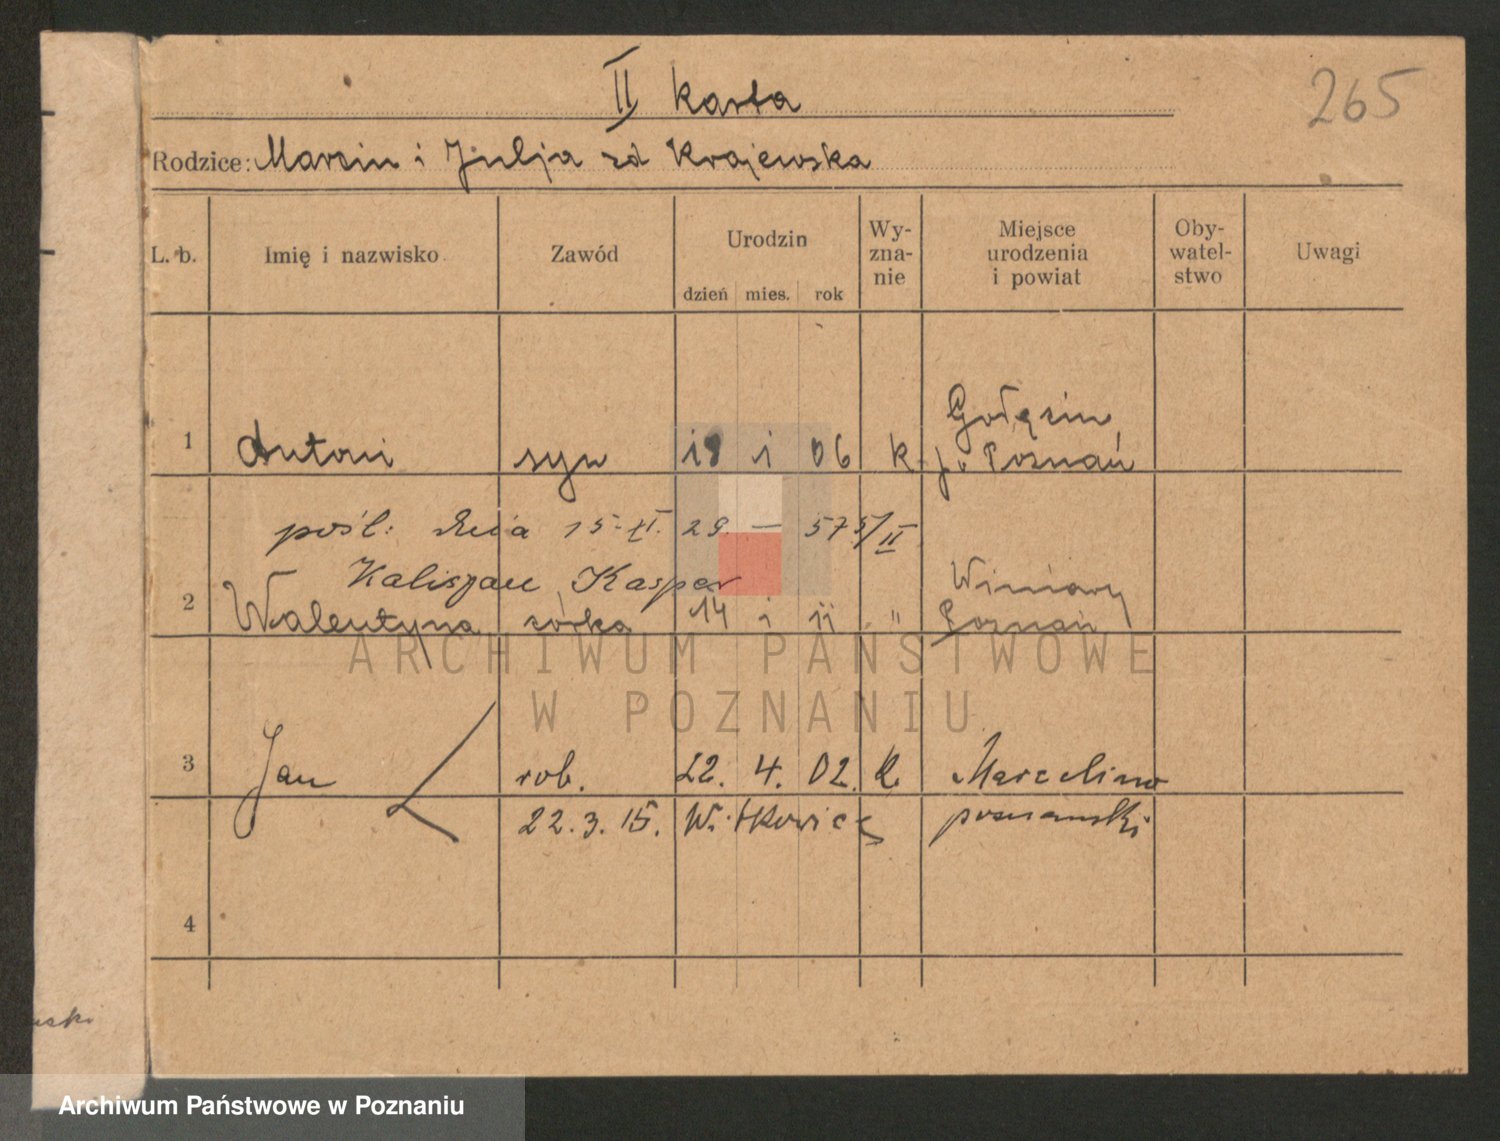 II karta
265
Rodzice: Marcin i Julja zd Krajewska
L. b. Imię i nazwisko Zawód Urodzin dzień mies. rok Wy-zna-nie Miejsce urodzenia i powiat Oby-watel-stwo Uwagi
Gołęcin
1 Antoni syn 18 i 06 k p. Poznań
pośl: dnia 15-XI. 29. — 575/II
Kaliszan Kasper Winiary
2 Walentyna córka 14 i ii " Poznań
ARCHIWUM PAŃSTWOWE
W POZNANIU
3 Jan rob. 22. 4. 02. k. Marcelino
22.3.15. Witkowice poznański
4
Archiwum Państwowe w Poznaniu